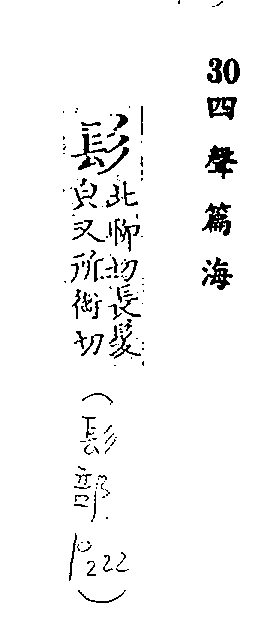 30 四聲篇海
髟
切長髮
皃又所銜切
(髟部 p222)